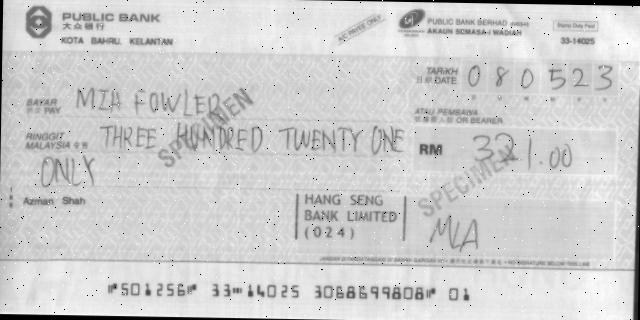 PUBLIC BANK
大众银行
KOTA BAHRU, KELANTAN
A/C PAYEE ONLY
PUBLIC BANK BERHAD
AKAUN SEMASA-i WADIAH
Stamp Duty Paid
33-14025
TARIKH
日期 DATE
080523
BAYAR
PAY
MIA FOWLER
ATAU PEMBAWA
OR BEARER
RINGGIT
MALAYSIA
THREE HUNDRED TWENTY ONE
ONLY
RM
321.00
SPECIMEN
SPECIMEN
Azman Shah
HANG SENG
BANK LIMITED
(024)
MIA
NO SIGNATURE BELOW THIS LINE
⑈501256⑈ 33⑉14025 3068699808⑈ 01